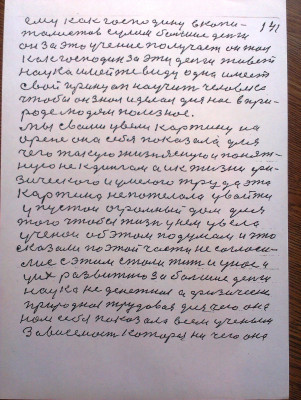 141
ему как господину в копи-
талистов сулит большие деньги
он за это учение получает он там
как господин за эти деньги живет
наука имеет ввиду одна имеет
свой принцип научить человека
чтобы он знал и делал для нас в при-
роде людям полезное.
Мы с вами увели картину на
арене она себя показала для
чего такую жизненную и понят-
ную не к книгам а к жизни фи-
зического и умелого труда эта
картина не потопала увойти
у пустой огромный дом для
того чтобы жизнь у нем увела
ученой об этом подумали и это
сказали по этой части не согласи-
лись с этим стали жить и у своей
уих развитию за большие деньги
наука не денежная а физическая
природная трудовая для чего она
нам себя показала всем ученым
Зависимость которая ни чего она